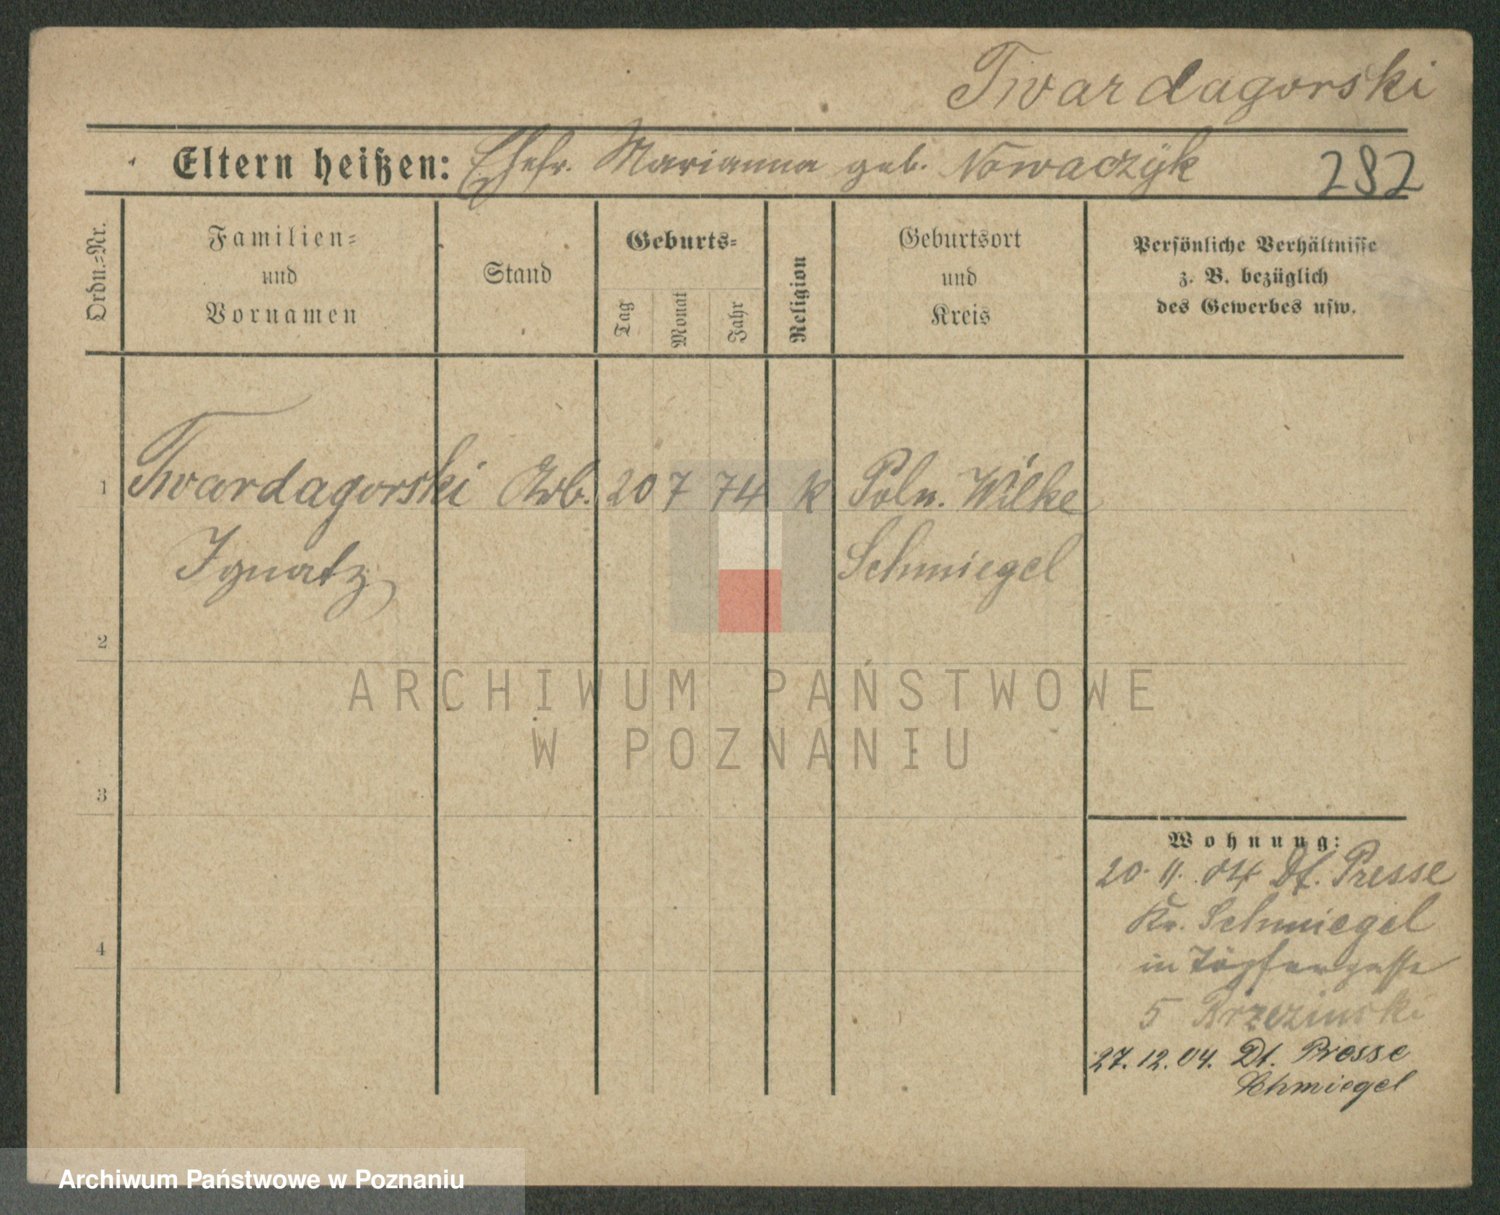 Twardagorski
Eltern heißen: Ehefr. Marianna geb. Nowaczyk 282
Ordn.=Nr.
Familien=
und
Vornamen
Stand
Geburts=
Tag
Monat
Jahr
Religion
Geburtsort
und
Kreis
Persönliche Verhältnisse
z. B. bezüglich
des Gewerbes usw.
1 Twardagorski Arb. 20 7 74 k Poln. Wilke
Ignatz Schmiegel
2
3
4
Wohnung:
20. 11. 04 Dt. Presse
Kr. Schmiegel
in Töpfergasse
5 Brzezinski
27. 12. 04. Dt. Presse
Schmiegel
ARCHIWUM PAŃSTWOWE
W POZNANIU
Archiwum Państwowe w Poznaniu